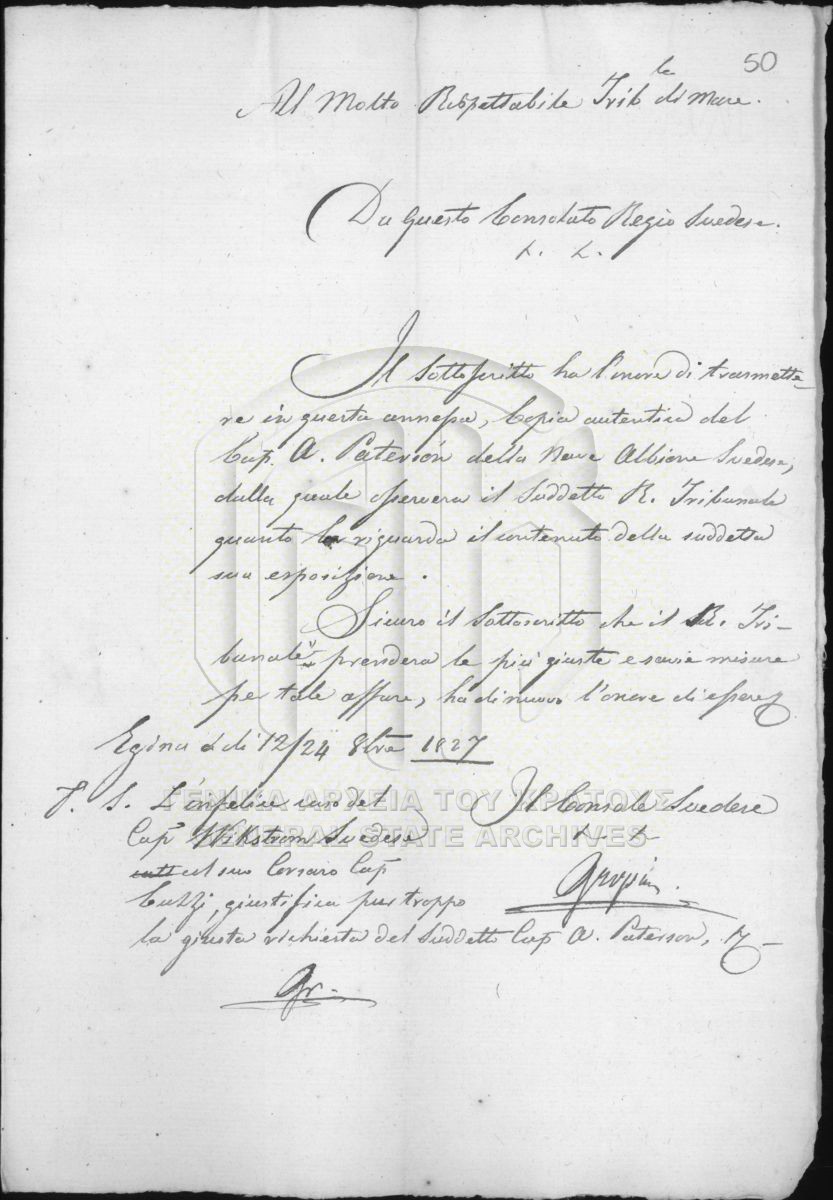 50
All Molto Rispettabile Trib.le di Mare.
Da questo Consolato Regio Svedese.
Il Sottoscritto ha l'onore di trasmette=
re in questa annessa, Copia autentica del
Cap. A. Paterson della Nave Albione Svedese,
dalla quale osservera il suddetto R. Tribunale
quanto riguarda il contenuto della suddetta
sua esposizione.
Sicuro il Sottoscritto che il R. Tri-
bunale prendera le più giuste e savie misure
per tale affare, ha di nuovo l'onore di essere
Egina di 12/24 8bre 1827
P. S. L'infelice caso del
Il Console Svedese
Cap.º Wikstrom Svedese
ΓΕΝΙΚΑ ΑΡΧΕΙΑ ΤΟΥ ΚΡΑΤΟΥΣ
GENERAL STATE ARCHIVES
col suo Corsaro Cap
Gropius.
Cuzzi, giustifica pur troppo
la giusta richiesta del Suddetto Cap A. Paterson,
Gr.